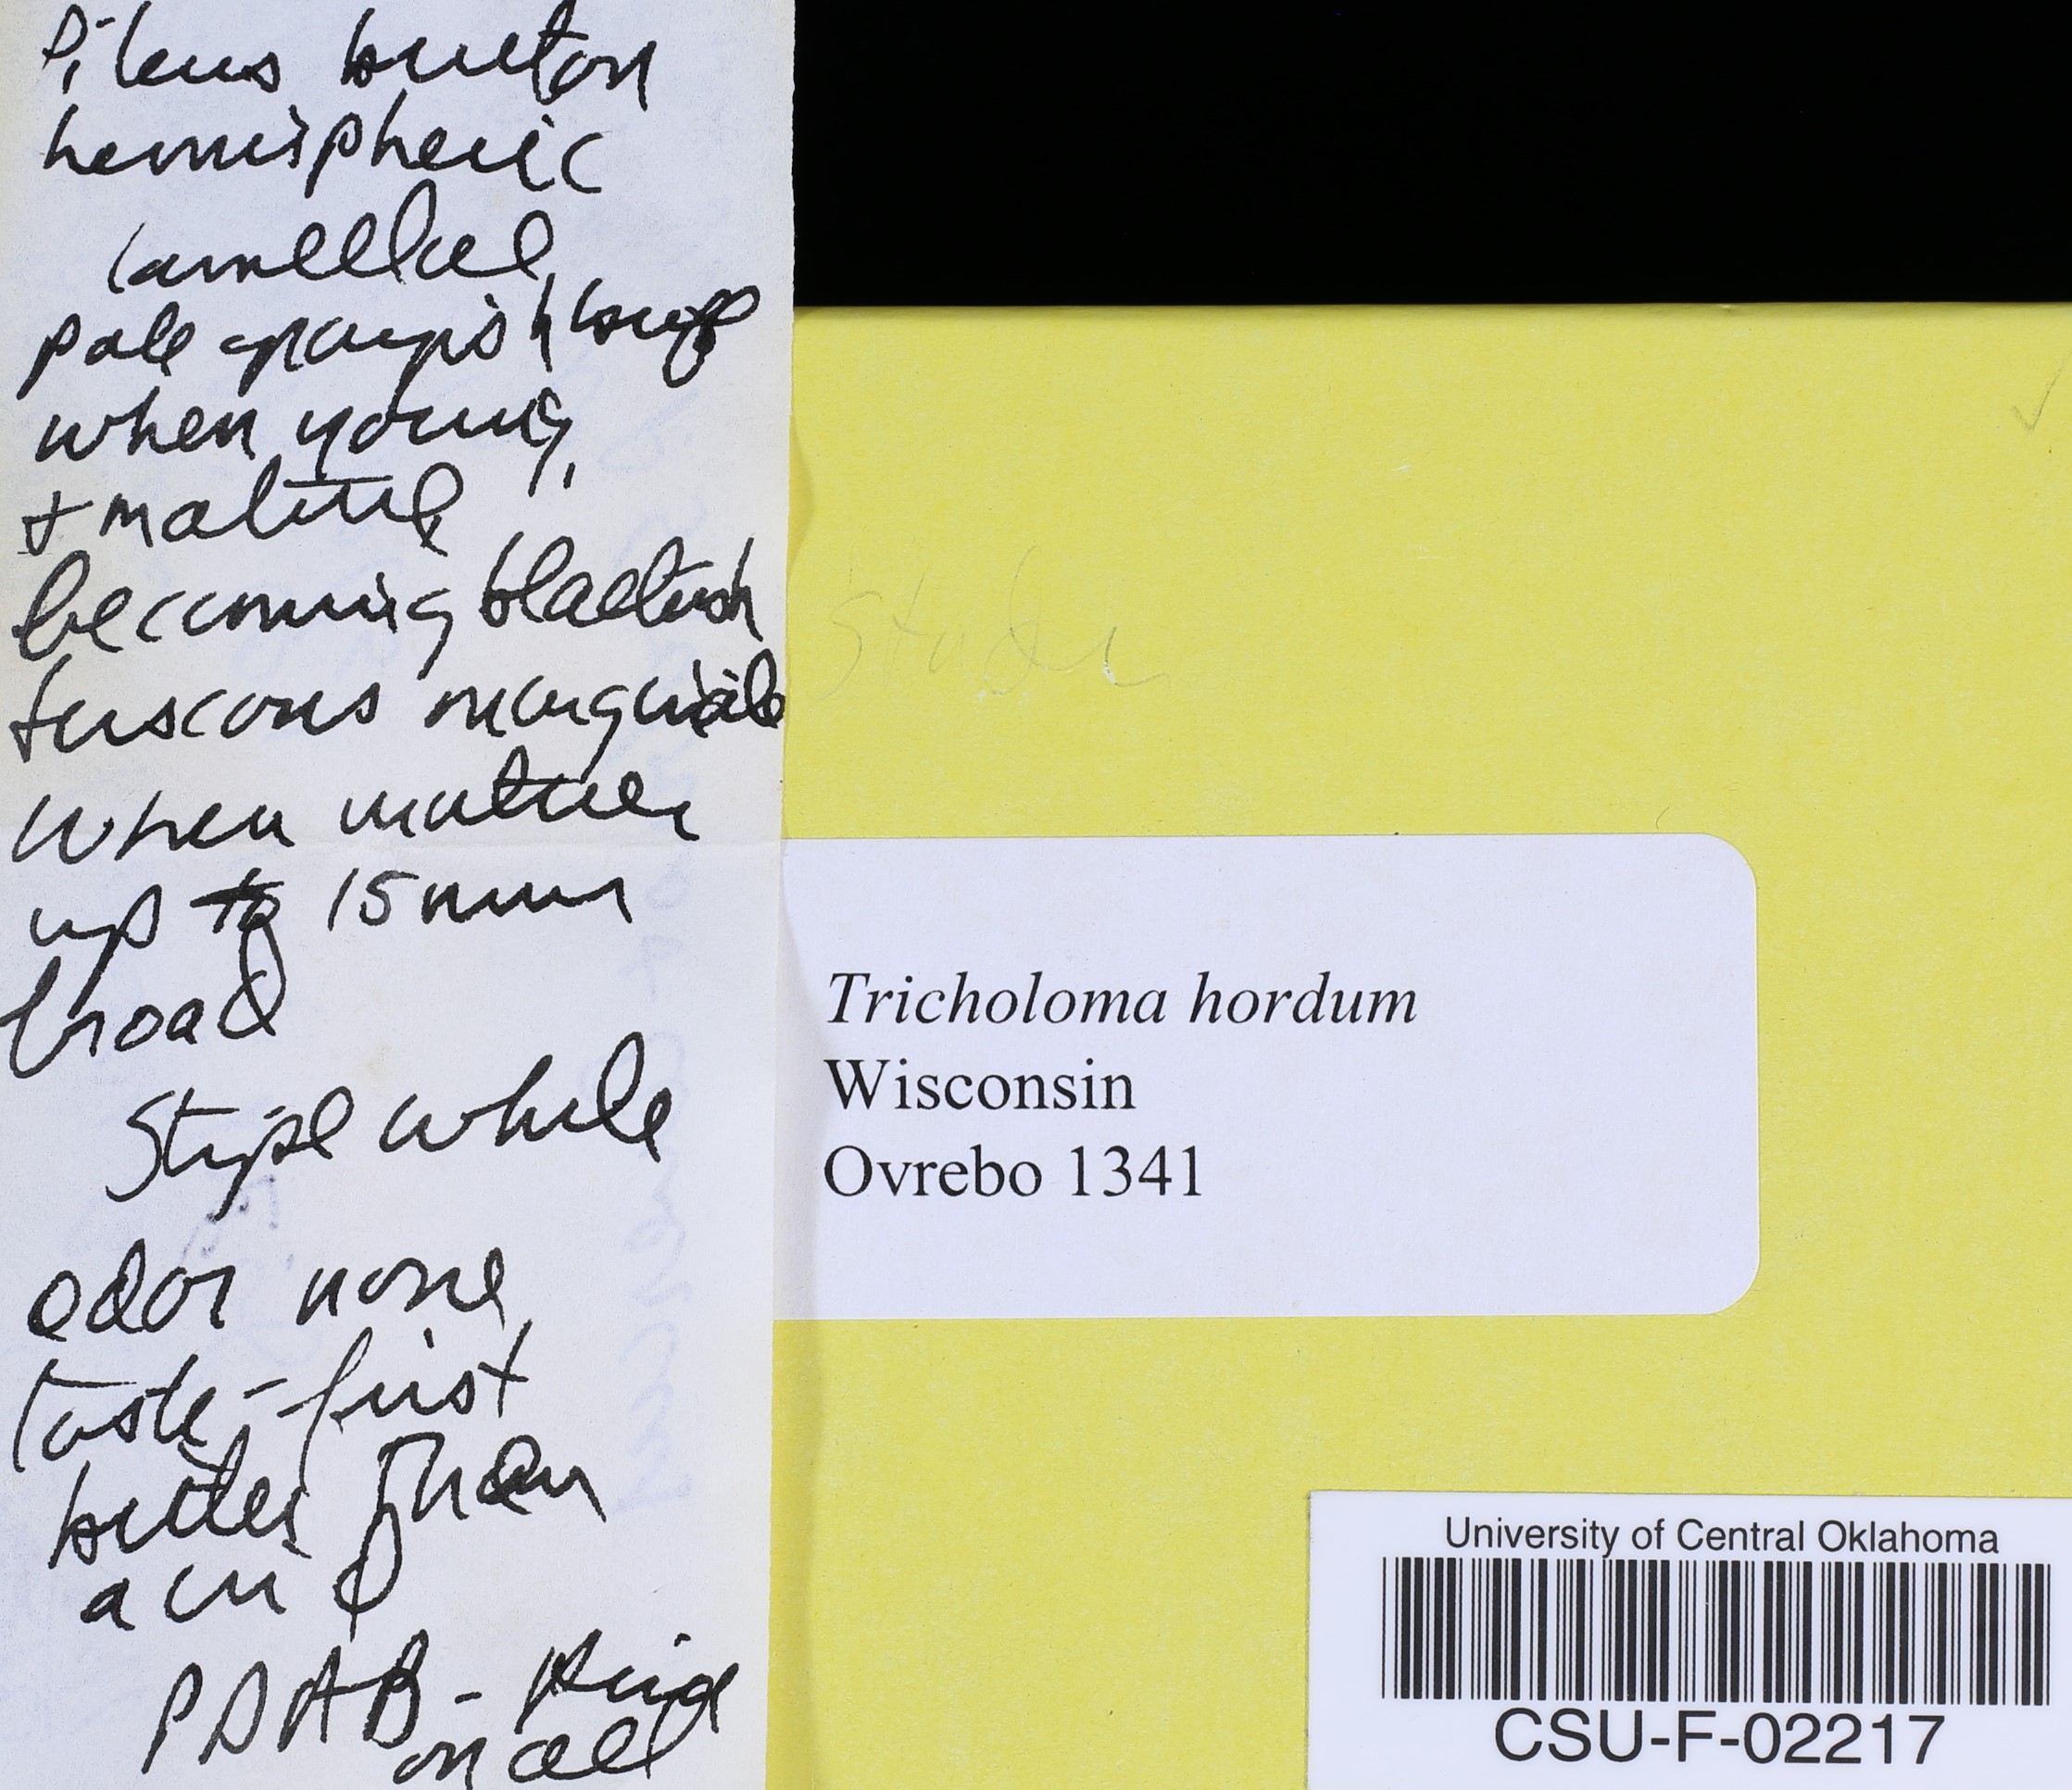 Pileus button
hemispheric
lamellae
pale grayish buff
when young,
+ mature
becoming blackish
fuscous marginate
when mature
up to 15 mm
broad
Stipe white
odor none
taste - first
bitter then
acrid
PDAB -
on all
Tricholoma hordum
Wisconsin
Ovrebo 1341
University of Central Oklahoma
CSU-F-02217